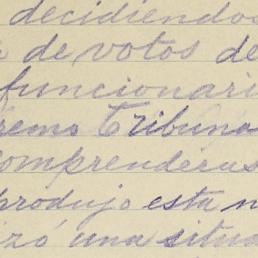 decidiendos
de votos de
funcionari
remo Tribuna
comprenderas
produjo esta n
izó una situa